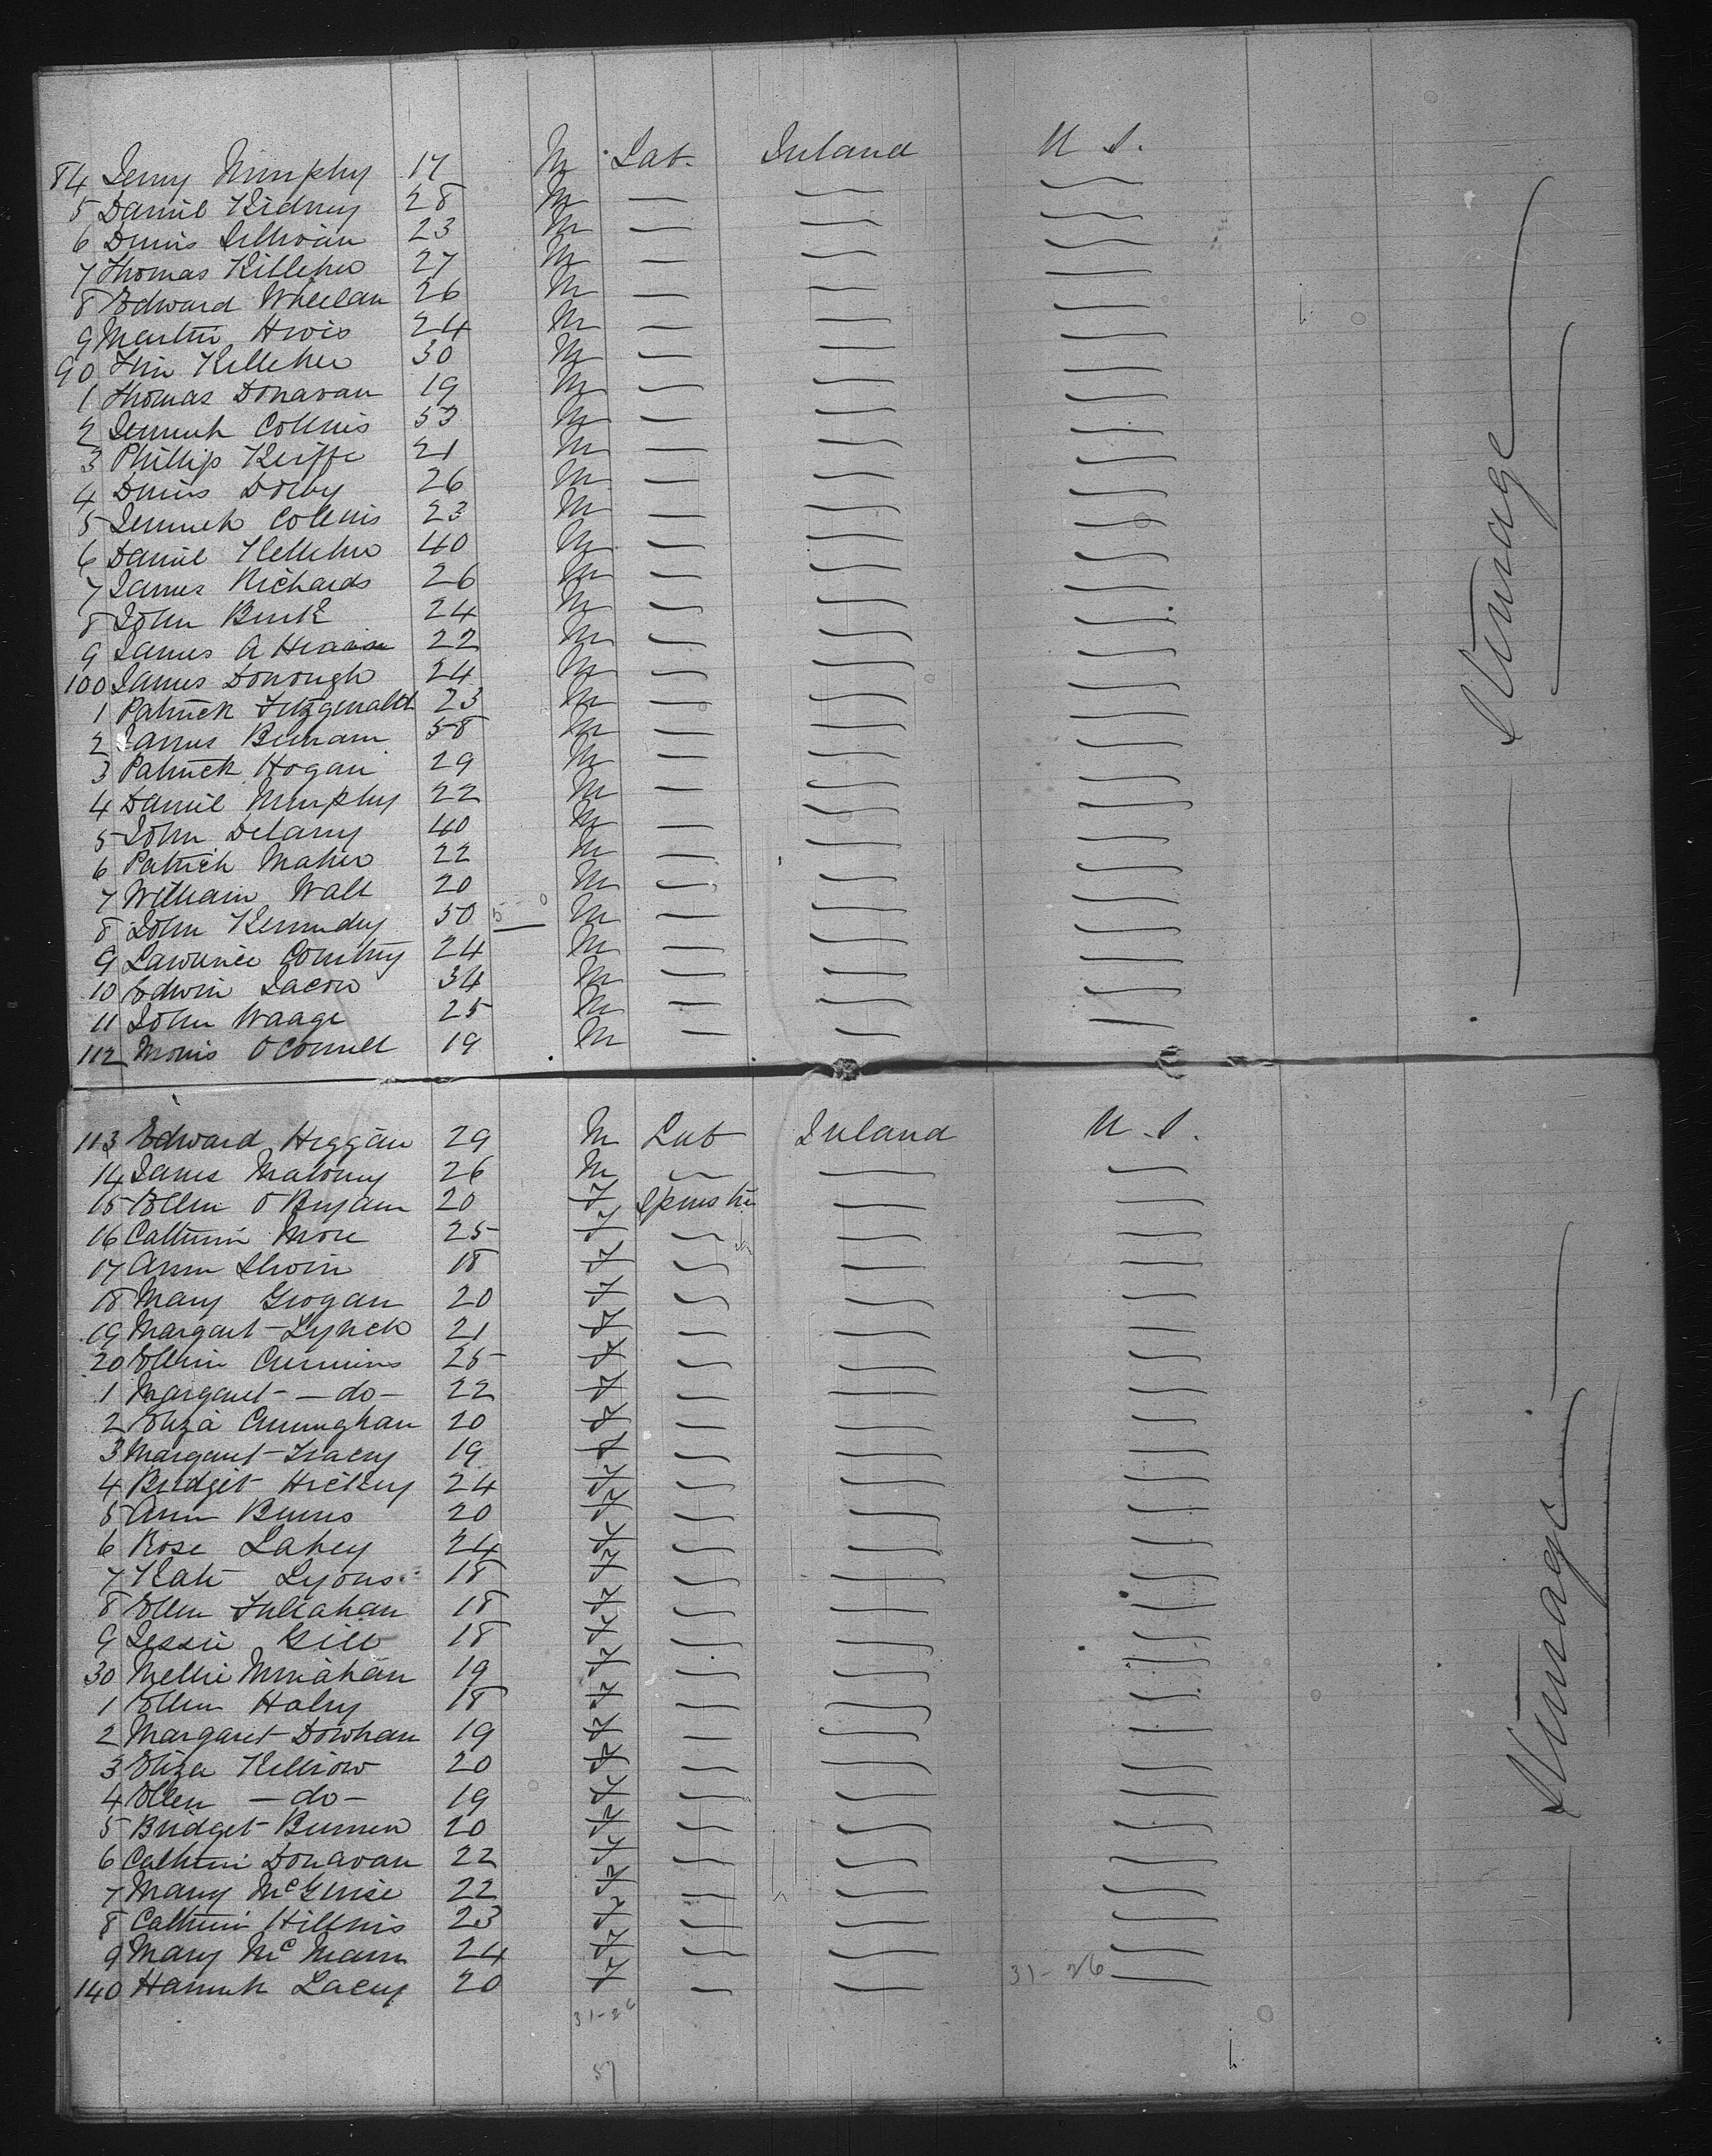 84 Jerry Murphy 17 M Lab. Ireland U S.
5 Daniel Kidney 28 M — — —
6 Denis Sullivan 23 M — — —
7 Thomas Killeher 27 M — — —
8 Edward Wheelan 26 M — — —
9 Martin 24 M — — —
90 Tim Kelleher 30 M — — —
1 Thomas Donavan 19 M — — —
2 Jeremiah Collins 53 M — — —
3 Phillip Keiffe 21 M — — —
4 Denis 26 M — — —
5 Jeremiah Collins 23 M — — —
6 Daniel Kelleher 40 M — — —
7 James Richards 26 M — — —
8 John Burke 24 M — — —
9 James A 22 M — — —
100 James Donough 24 M — — —
1 Patrick Fitzgerald 23 M — — —
2 James 58 M — — —
3 Patrick Hogan 29 M — — —
4 Daniel Murphy 22 M — — —
5 John Delany 40 M — — —
6 Patrick Maher 22 M — — —
7 William Wall 20 M — — —
8 John Kennedy 50 5-0 M — — —
9 Lawrence Courtney 24 M — — —
10 Edwin Lacon 34 M — — —
11 John Waage 25 M — — —
112 Morris O Connell 19 M — — —
— Steerage —
113 Edward Higgan 29 M Lab Ireland U.S.
14 James Maloney 26 M — — —
15 Ellen O Bryan 20 F Spinster — —
16 Catherine More 25 F — — —
17 Ann 18 F — — —
18 Mary Grogan 20 F — — —
19 Margaret Lynch 21 F — — —
20 Ellen Cummins 25 F — — —
1 Margaret — do — 22 F — — —
2 Eliza Cunningham 20 F — — —
3 Margaret Tracey 19 F — — —
4 Bridget Hickey 24 F — — —
5 Ann Burns 20 F — — —
6 Rose Lahey 24 F — — —
7 Kate Lyons 18 F — — —
8 Ellen Fullahan 18 F — — —
9 Jessie Gill 18 F — — —
30 Nellie Minahan 19 F — — —
1 Ellen Haley 18 F — — —
2 Margaret Dowhan 19 F — — —
3 Eliza 20 F — — —
4 Ellen — do — 19 F — — —
5 Bridget 20 F — — —
6 Catherine Donavan 22 F — — —
7 Mary McGuise 22 F — — —
8 Catherine 23 F — — —
9 Mary Mc Mann 24 F — — —
140 Hannah Lacey 20 F — — 31-26 —
31-26
57
— Steerage —